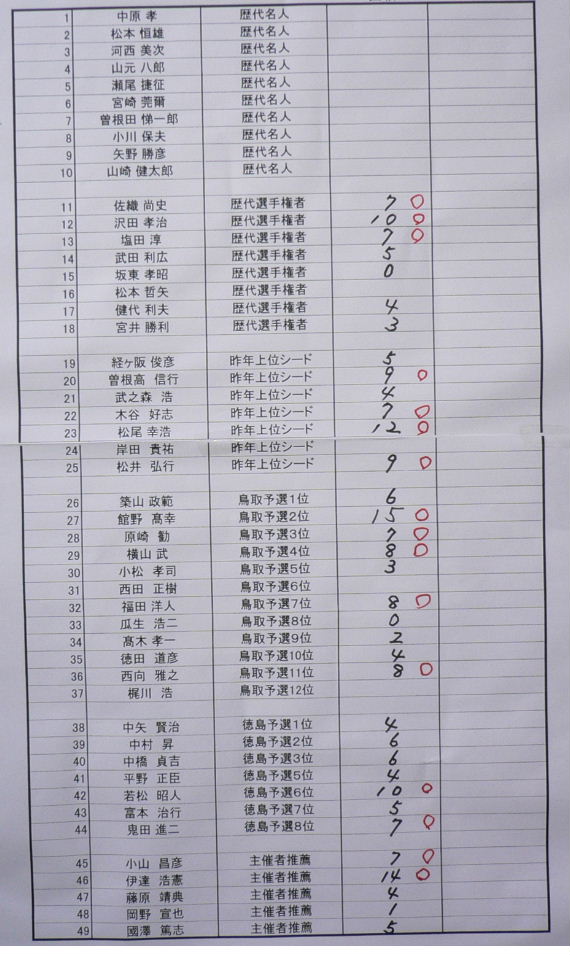 1 中原 孝 歴代名人
2 松本 恒雄 歴代名人
3 河西 美次 歴代名人
4 山元 八郎 歴代名人
5 瀬尾 捷征 歴代名人
6 宮崎 莞爾 歴代名人
7 曽根田 悌一郎 歴代名人
8 小川 保夫 歴代名人
9 矢野 勝彦 歴代名人
10 山崎 健太郎 歴代名人
11 佐織 尚史 歴代選手権者 7 ○
12 沢田 孝治 歴代選手権者 10 ○
13 塩田 淳 歴代選手権者 7 ○
14 武田 利広 歴代選手権者 5
15 坂東 孝昭 歴代選手権者 0
16 松本 哲矢 歴代選手権者
17 健代 利夫 歴代選手権者 4
18 宮井 勝利 歴代選手権者 3
19 経ヶ阪 俊彦 昨年上位シード 5
20 曽根高 信行 昨年上位シード 9 ○
21 武之森 浩 昨年上位シード 4
22 木谷 好志 昨年上位シード 7 ○
23 松尾 幸浩 昨年上位シード 12 ○
24 岸田 貴祐 昨年上位シード
25 松井 弘行 昨年上位シード 9 ○
26 築山 政範 鳥取予選1位 6
27 館野 髙幸 鳥取予選2位 15 ○
28 原崎 勧 鳥取予選3位 7 ○
29 横山 武 鳥取予選4位 8 ○
30 小松 孝司 鳥取予選5位 3
31 西田 正樹 鳥取予選6位
32 福田 洋人 鳥取予選7位 8 ○
33 瓜生 浩二 鳥取予選8位 0
34 髙木 孝一 鳥取予選9位 2
35 徳田 道彦 鳥取予選10位 4
36 西向 雅之 鳥取予選11位 8 ○
37 梶川 浩 鳥取予選12位
38 中矢 賢治 徳島予選1位 4
39 中村 昇 徳島予選2位 6
40 中橋 貞吉 徳島予選3位 6
41 平野 正臣 徳島予選5位 4
42 若松 昭人 徳島予選6位 10 ○
43 富本 治行 徳島予選7位 5
44 鬼田 進二 徳島予選8位 7 ○
45 小山 昌彦 主催者推薦 7 ○
46 伊達 浩憲 主催者推薦 14 ○
47 藤原 靖典 主催者推薦 4
48 岡野 宣也 主催者推薦 1
49 國澤 篤志 主催者推薦 5